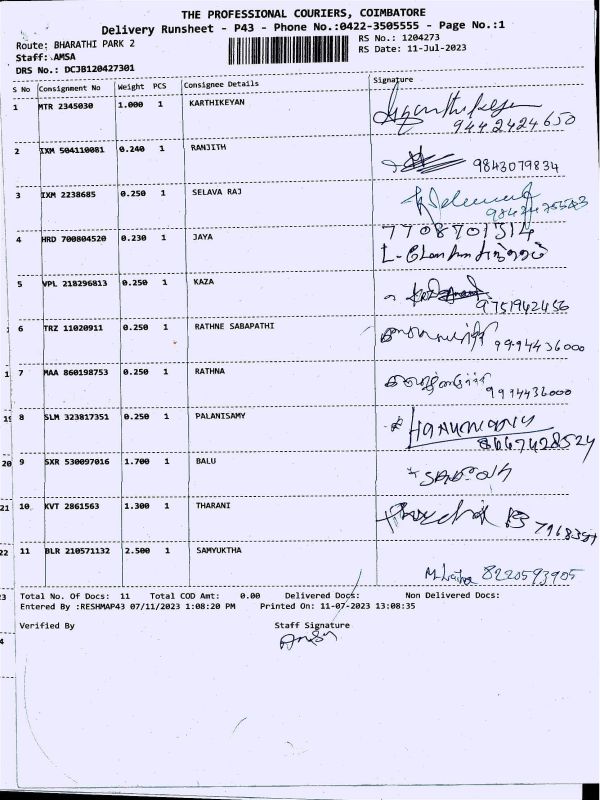 THE PROFESSIONAL COURIERS, COIMBATORE
Delivery Runsheet - P43 - Phone No.:0422-3505555 - Page No.:1
Route: BHARATHI PARK 2 RS No.: 1204273
Staff: AMSA RS Date: 11-Jul-2023
DRS No.: DCJB120427301
S No Consignment No Weight PCS Consignee Details Signature
1 MTR 2345030 1.000 1 KARTHIKEYAN
9442424650
2 IXM 504110081 0.240 1 RANJITH 9843079834
3 IXM 2238685 0.250 1 SELAVA RAJ
4 HRD 700804520 0.230 1 JAYA 7708701514
5 VPL 218296813 0.250 1 KAZA
9751942456
6 TRZ 11020911 0.250 1 RATHNE SABAPATHI 9994436000
7 MAA 860198753 0.250 1 RATHNA 9994436000
8 SLM 323817351 0.250 1 PALANISAMY
8667428524
9 SXR 530097016 1.700 1 BALU
10 KVT 2861563 1.300 1 THARANI
11 BLR 210571132 2.500 1 SAMYUKTHA
8220593905
Total No. Of Docs: 11 Total COD Amt: 0.00 Delivered Docs: Non Delivered Docs:
Entered By :RESHMAP43 07/11/2023 1:08:20 PM Printed On: 11-07-2023 13:08:35
Verified By Staff Signature